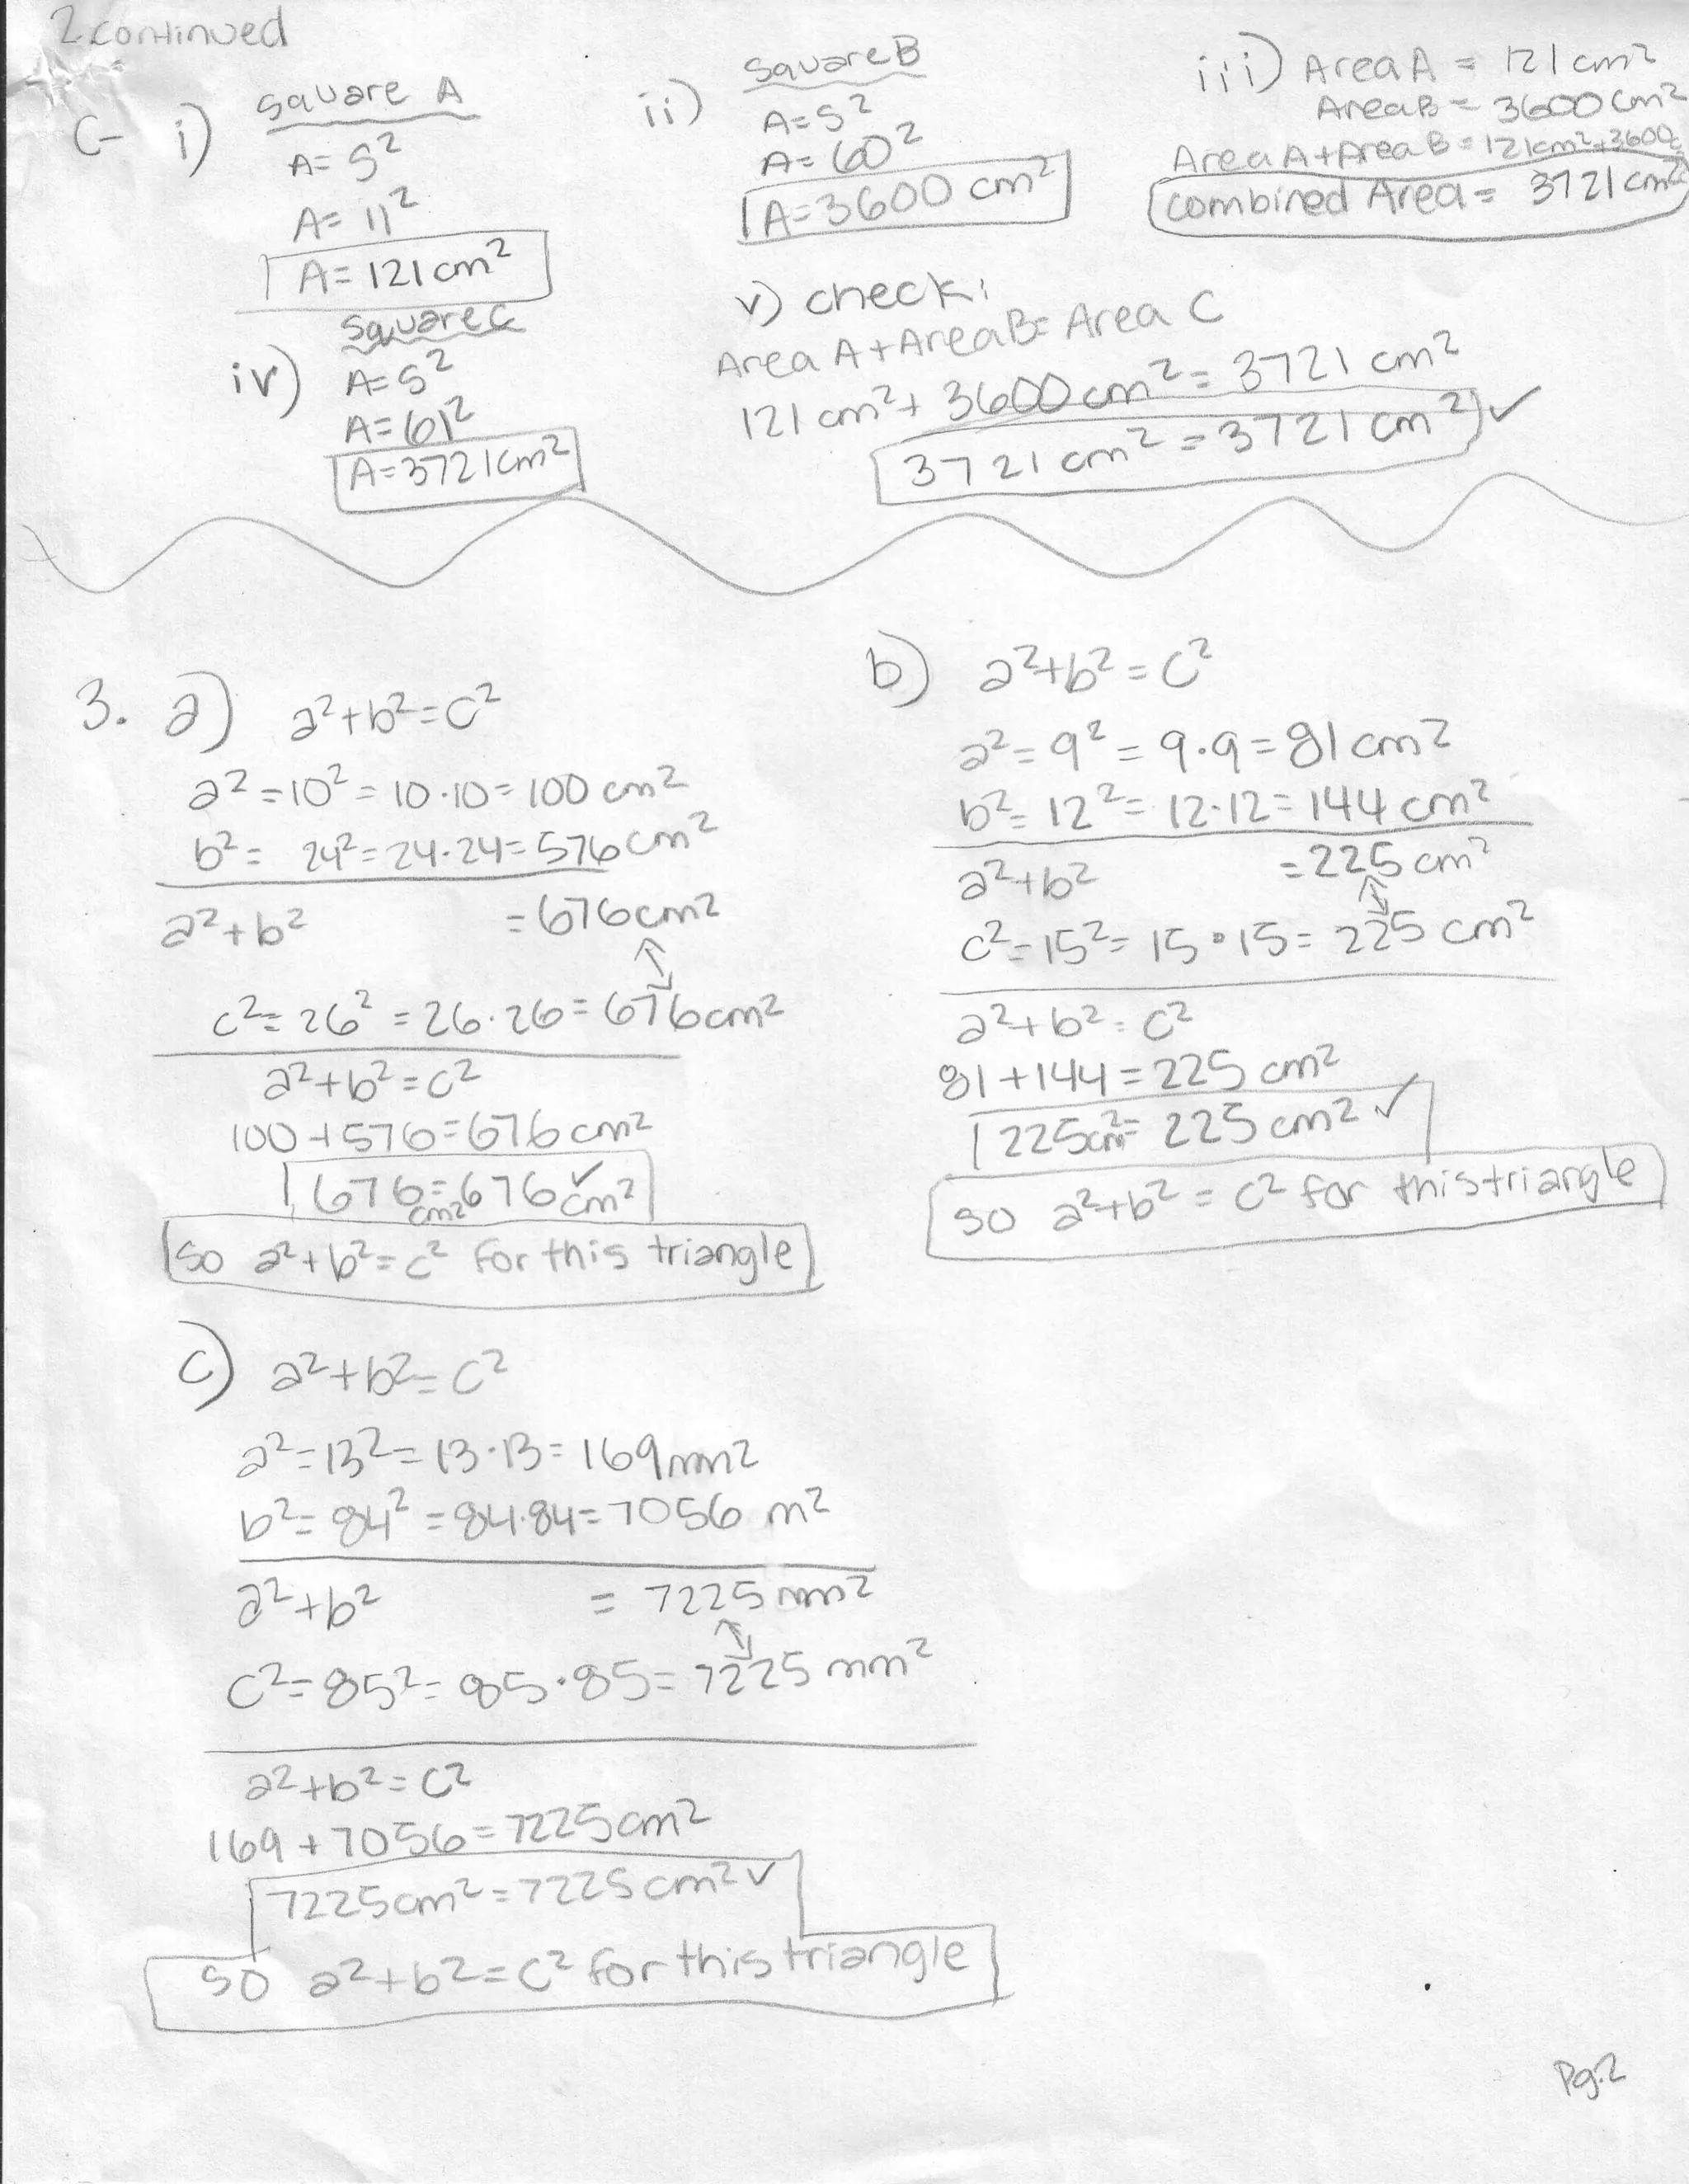 2 continued
c- i) Square A
A= S²
A= 11²
A= 121 cm²
ii) Square B
A=S²
A=60²
A=3600 cm²
iii) Area A = 121 cm²
Area B = 3600 cm²
Area A+Area B = 121cm²+3600c
Combined Area= 3721 cm²
iv) Square C
A=S²
A=61²
A=3721cm²
v) check:
Area A+Area B= Area C
121 cm²+ 3600cm² = 3721 cm²
3721 cm² = 3721 cm² ✓
3. a) a²+b²=c²
a²=10²=10·10=100 cm²
b²= 24²=24·24=576cm²
a²+b² =676cm²
c²=26²=26·26=676cm²
a²+b²=c²
100+576=676cm²
676cm²=676cm² ✓
So a²+b²=c² for this triangle
b) a²+b²=c²
a²=9²=9·9=81cm²
b²=12²=12·12=144cm²
a²+b² =225cm²
c²=15²=15·15=225 cm²
a²+b²=c²
81+144=225cm²
225cm²=225cm² ✓
So a²+b²=c² for this triangle
c) a²+b²=c²
a²=13²=13·13=169mm²
b²=84²=84·84=7056 m²
a²+b² = 7225 mm²
c²=85²=85·85=7225 mm²
a²+b²=c²
169+7056=7225cm²
7225cm²=7225cm² ✓
So a²+b²=c² for this triangle
Pg.2